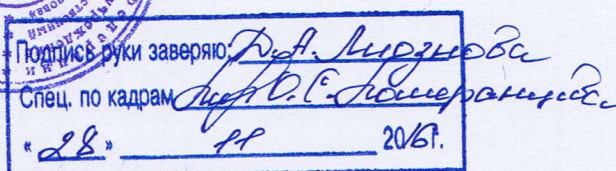 Подпись руки заверяю: Д.А. Лиознова
Спец. по кадрам О.С. Померанцева
« 28 » 11 2016г.